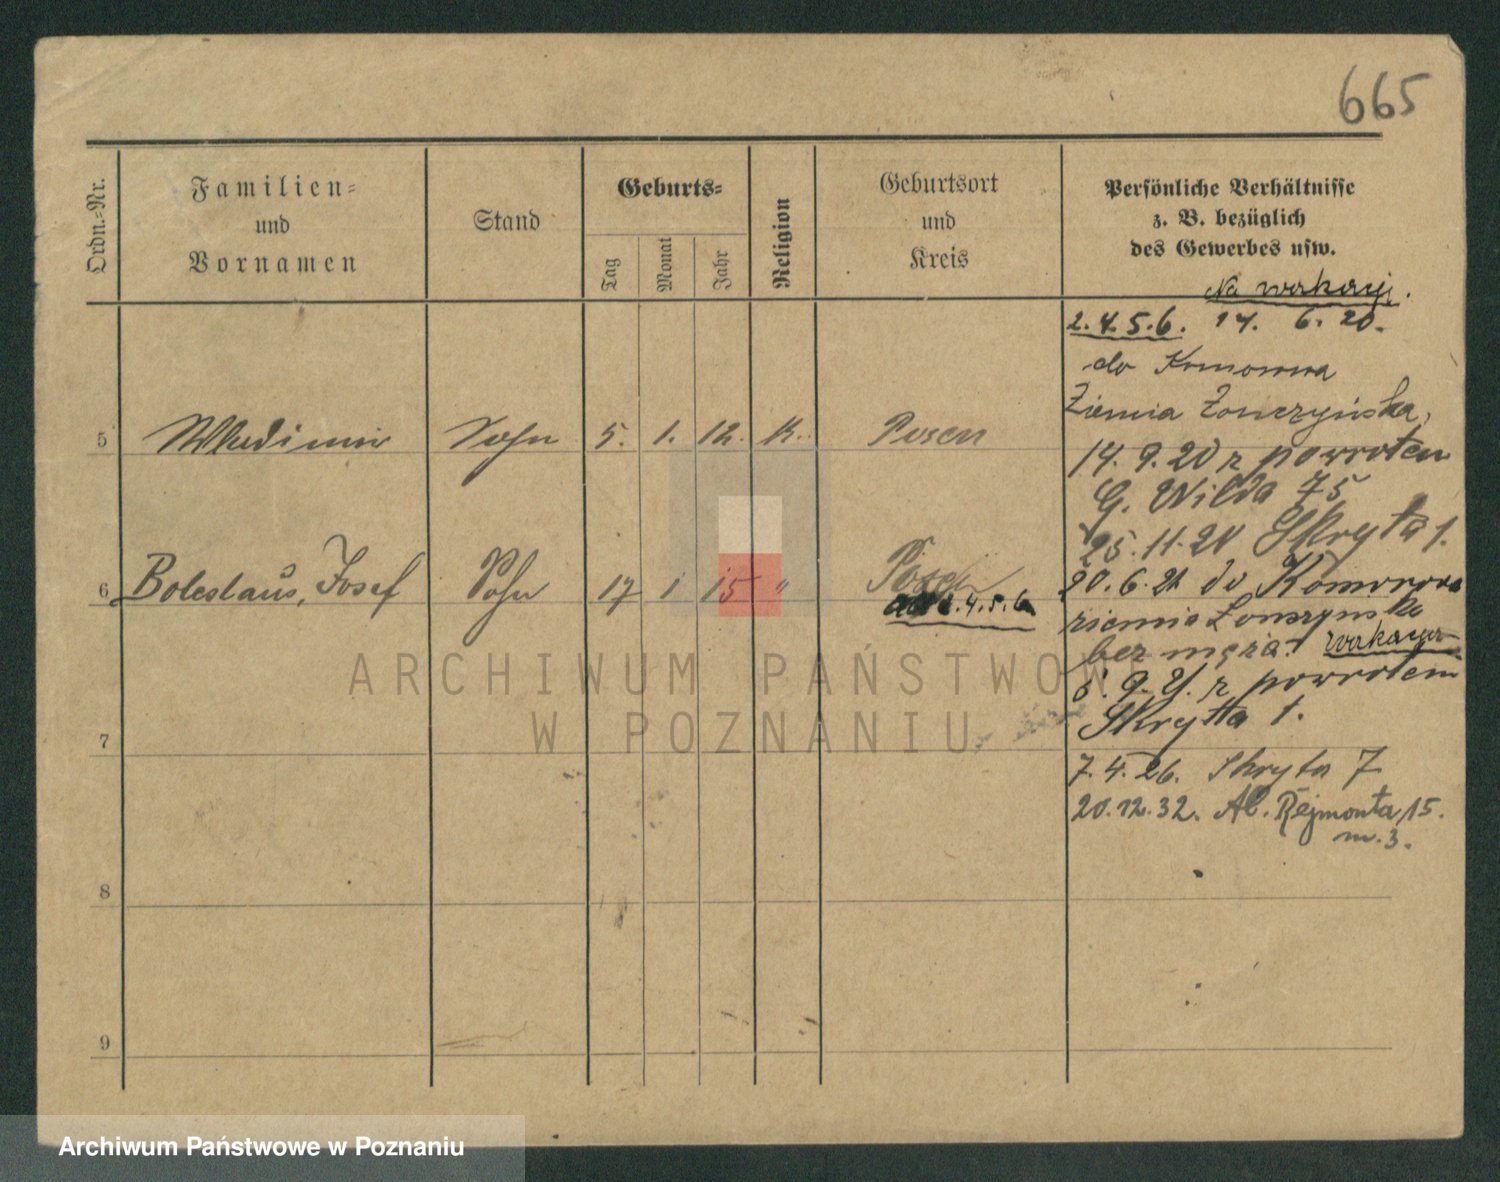 665
Ordn.-Nr.
Familien-
und
Vornamen
Stand
Geburts-
Tag
Monat
Jahr
Religion
Geburtsort
und
Kreis
Persönliche Verhältnisse
z. B. bezüglich
des Gewerbes usw.
Na wakacji.
2.4.5.6. 17. 6. 20.
do Komorowa
Ziemia Łonczyńska,
5 Wladimir Sohn 5. 1. 12. K. Posen
14. 9. 20 z powrotem
G. Wilda 75
25.11.20 Skryta 1.
6 Boleslaus, Josef Sohn 17 1 15 " Posen
2.4.5.6
20.6.21 do Komorowa
ziemia Łonszynska
bez męża. Wakacyje
5. 9. 21. z powrotem
Skrytta 1.
7
7.4.26. Skryta 7
20.12.32. Al. Rejmonta, 15.
m. 3.
8
9
ARCHIWUM PAŃSTWOWE
W POZNANIU
Archiwum Państwowe w Poznaniu